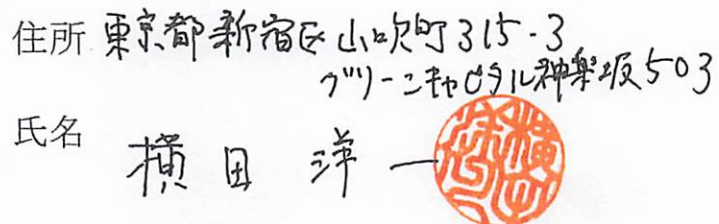 住所 東京都新宿区山吹町315-3
グリーンキャピタル神楽坂503
氏名 横田 洋一